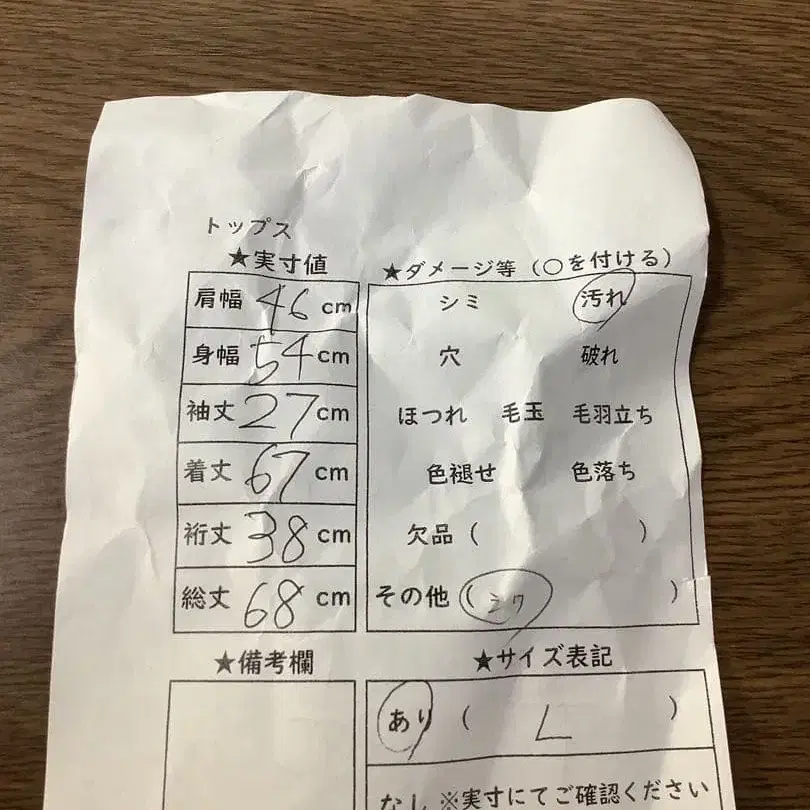 トップス
★実寸値
肩幅 46 cm
身幅 54 cm
袖丈 27 cm
着丈 67 cm
裄丈 38 cm
総丈 68 cm
★ダメージ等（○を付ける）
シミ 汚れ
穴 破れ
ほつれ 毛玉 毛羽立ち
色褪せ 色落ち
欠品（ ）
その他（シワ ）
★備考欄
★サイズ表記
あり（ L ）
なし ※実寸にてご確認ください